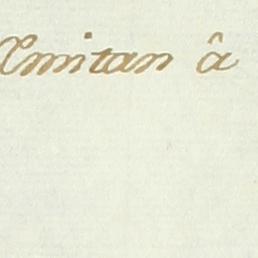 Emitan â